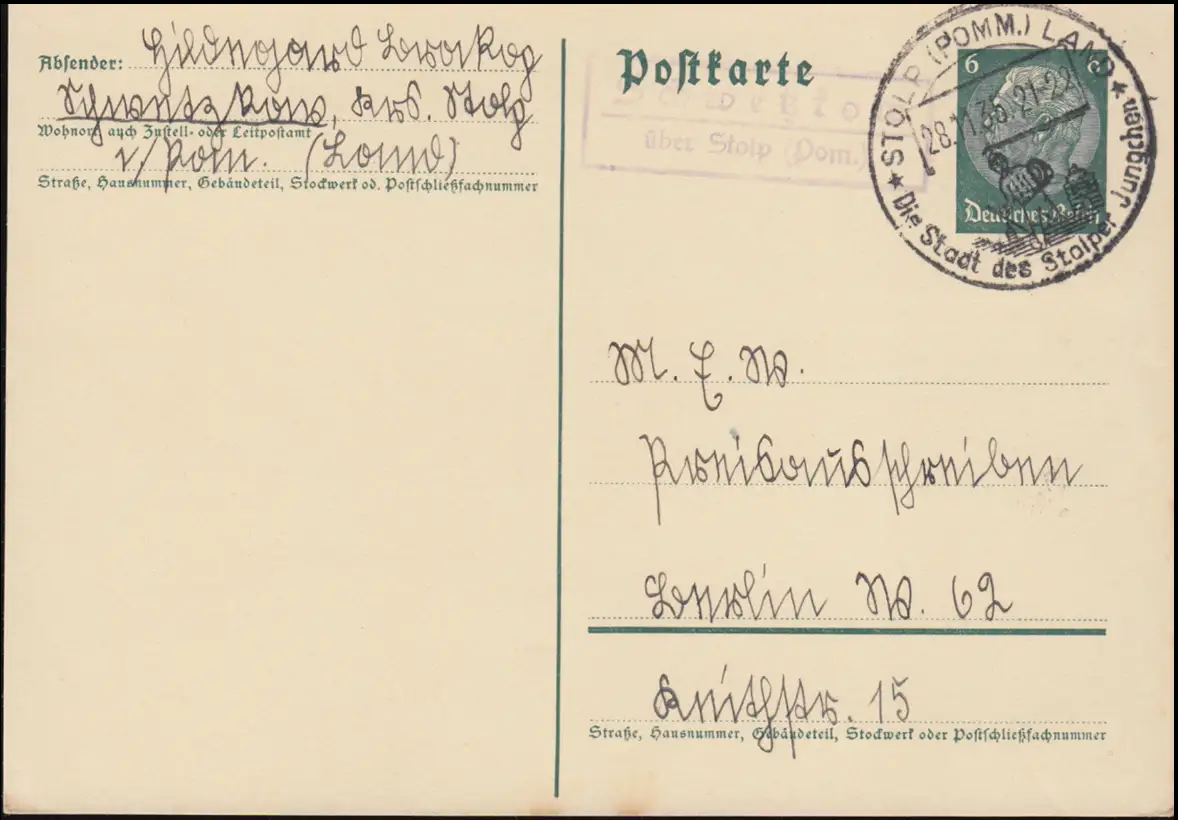 Absender: Hildegard
Schwetzkow, Krs. Stolp
Wohnort, auch Zustell- oder Leitpostamt
i/Pom. (Land)
Straße, Hausnummer, Gebäudeteil, Stockwerk od. Postschließfachnummer
Postkarte
Schwetzkow
über Stolp (Pom.)
★ STOLP (POMM.) LAND ★
28.11.35.21-22
Die Stadt des Stolper Jungchen
6 6
Deutsches Reich
M. E. W.
Preisausschreiben
Berlin W. 62
Keithstr. 15
Straße, Hausnummer, Gebäudeteil, Stockwerk oder Postschließfachnummer